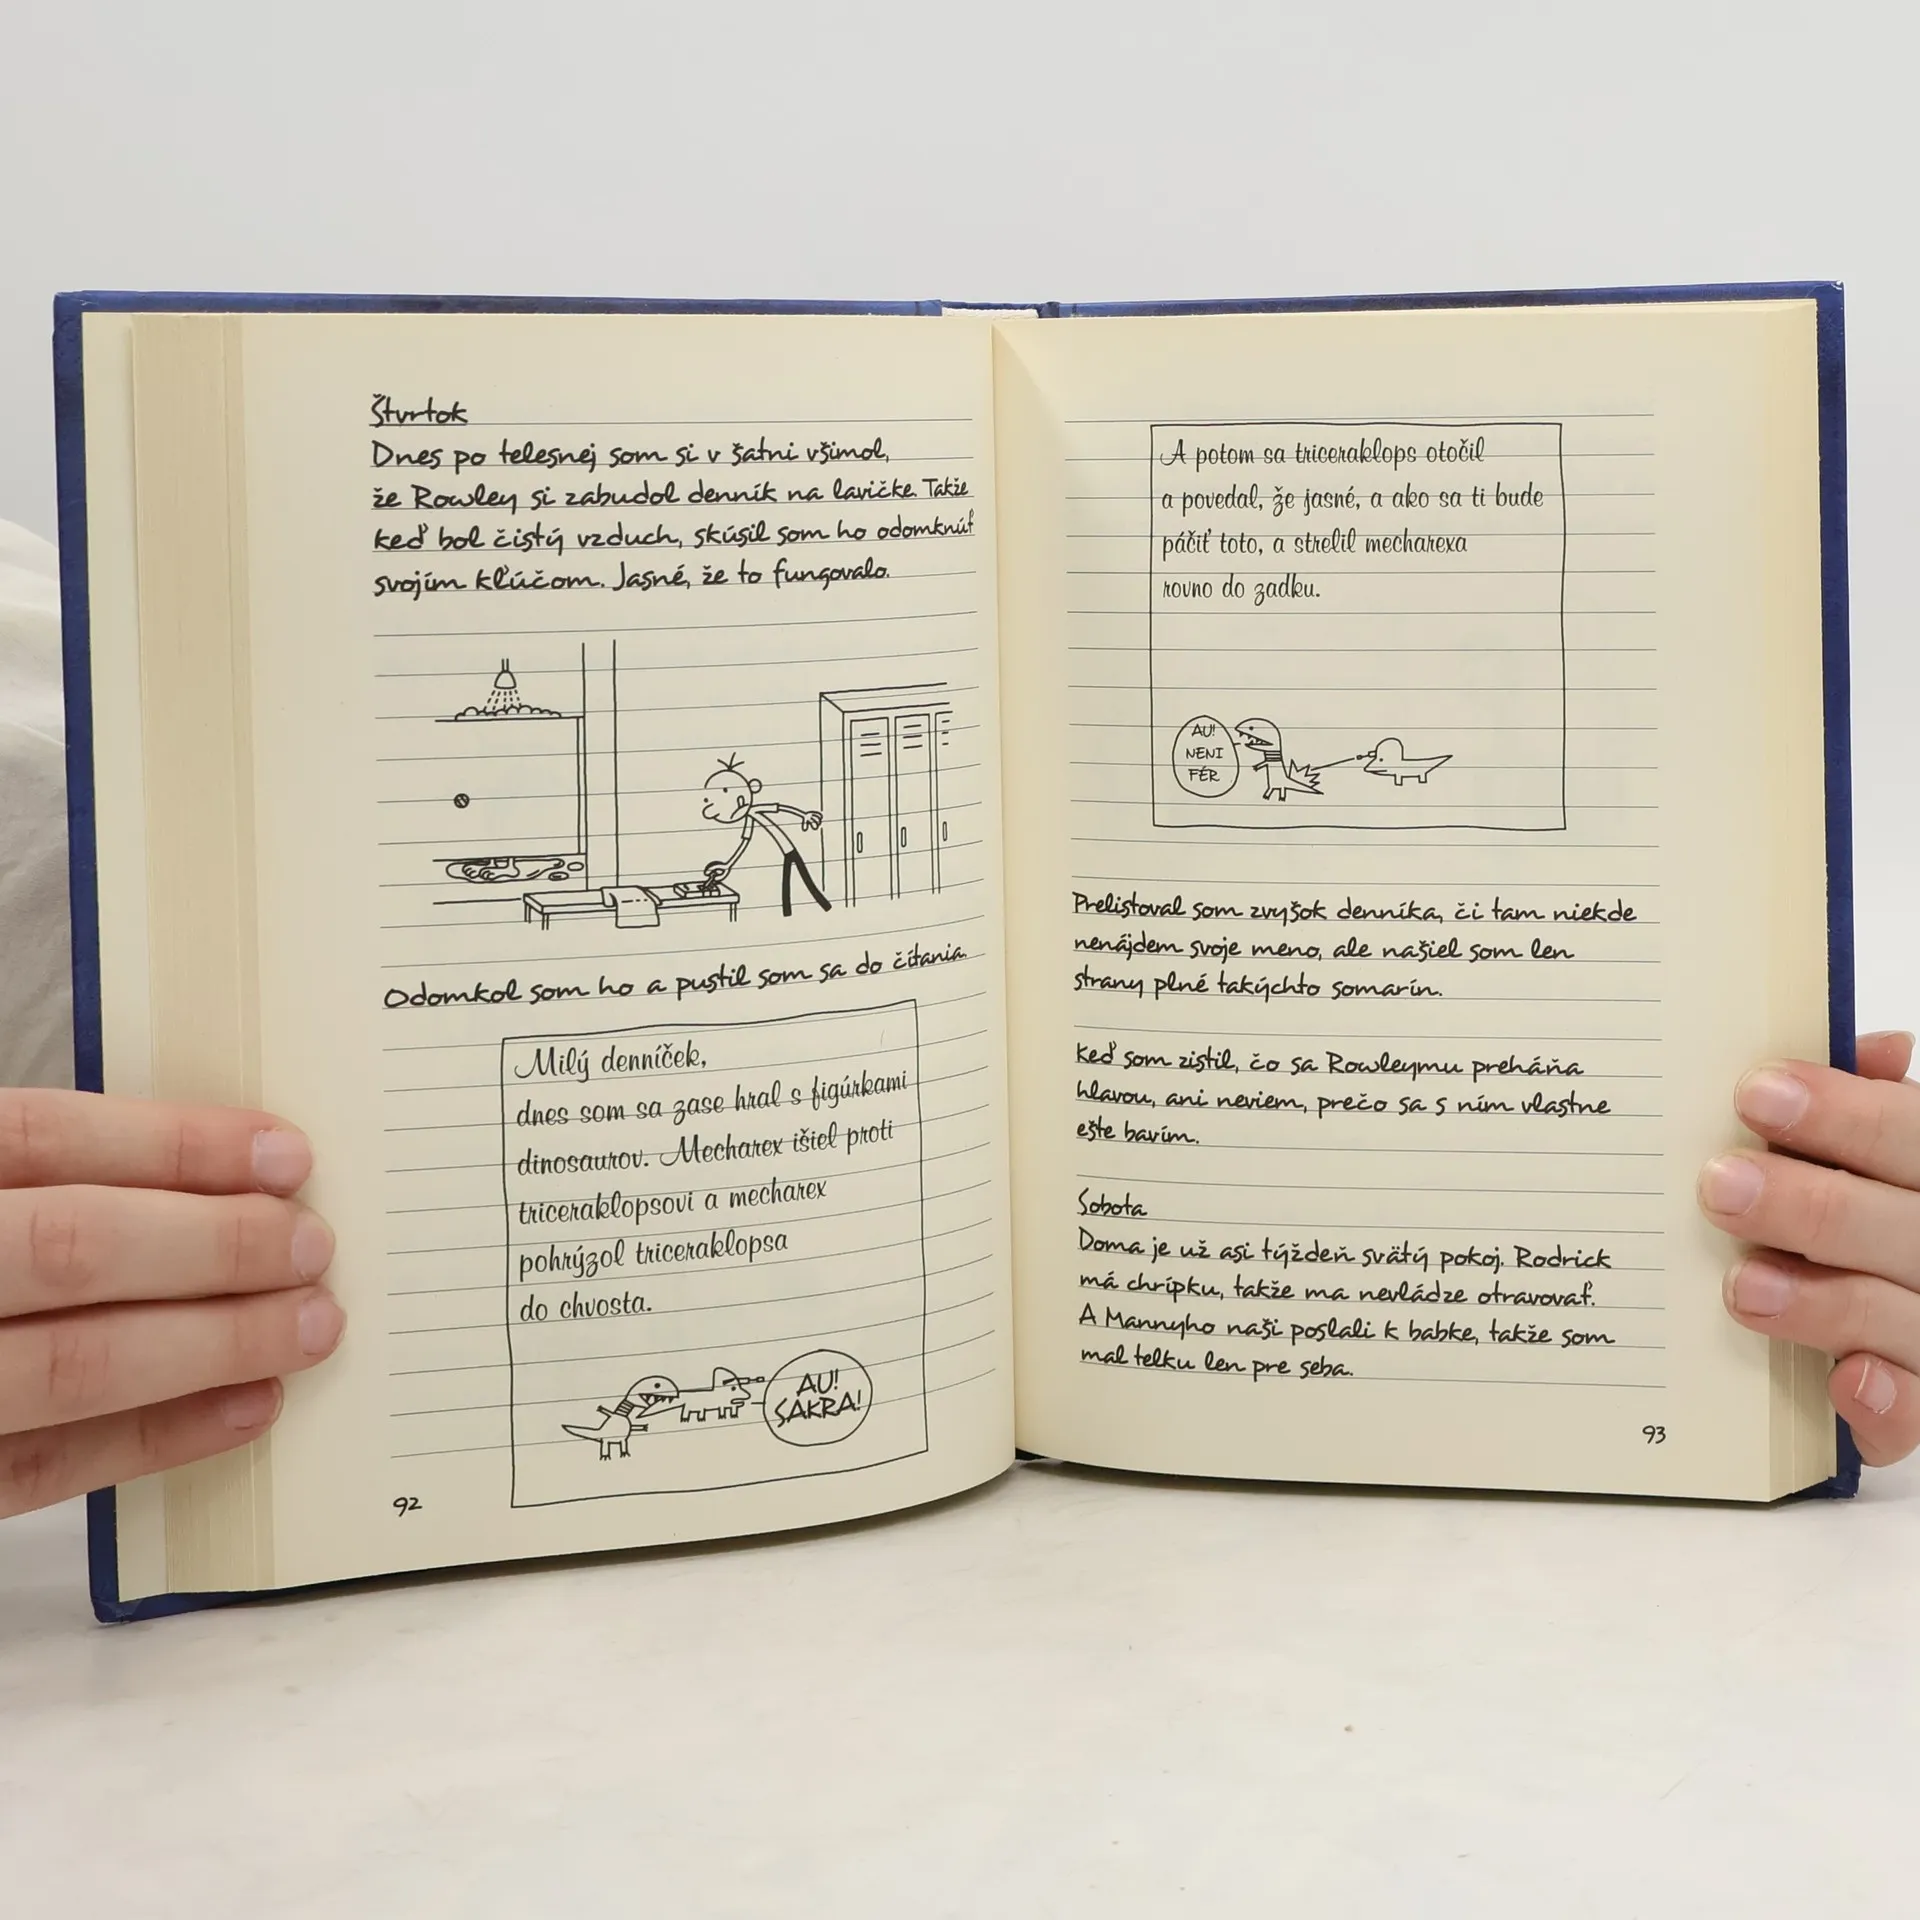 Štvrtok
Dnes po telesnej som si v šatni všimol,
že Rowley si zabudol denník na lavičke. Takže
keď bol čistý vzduch, skúsil som ho odomknúť
svojím kľúčom. Jasné, že to fungovalo.
Odomkol som ho a pustil som sa do čítania.
Milý denníček,
dnes som sa zase hral s figúrkami
dinosaurov. Mecharex išiel proti
triceraklopsovi a mecharex
pohrýzol triceraklopsa
do chvosta.
AU!
SAKRA!
92
A potom sa triceraklops otočil
a povedal, že jasné, a ako sa ti bude
páčiť toto, a strelil mecharexa
rovno do zadku.
AU!
NENI
FÉR
Prelistoval som zvyšok denníka, či tam niekde
nenájdem svoje meno, ale našiel som len
strany plné takýchto somarín.
Keď som zistil, čo sa Rowleymu preháňa
hlavou, ani neviem, prečo sa s ním vlastne
ešte bavím.
Sobota
Doma je už asi týždeň svätý pokoj. Rodrick
má chrípku, takže ma nevládze otravovať.
A Mannyho naši poslali k babke, takže som
mal telku len pre seba.
93